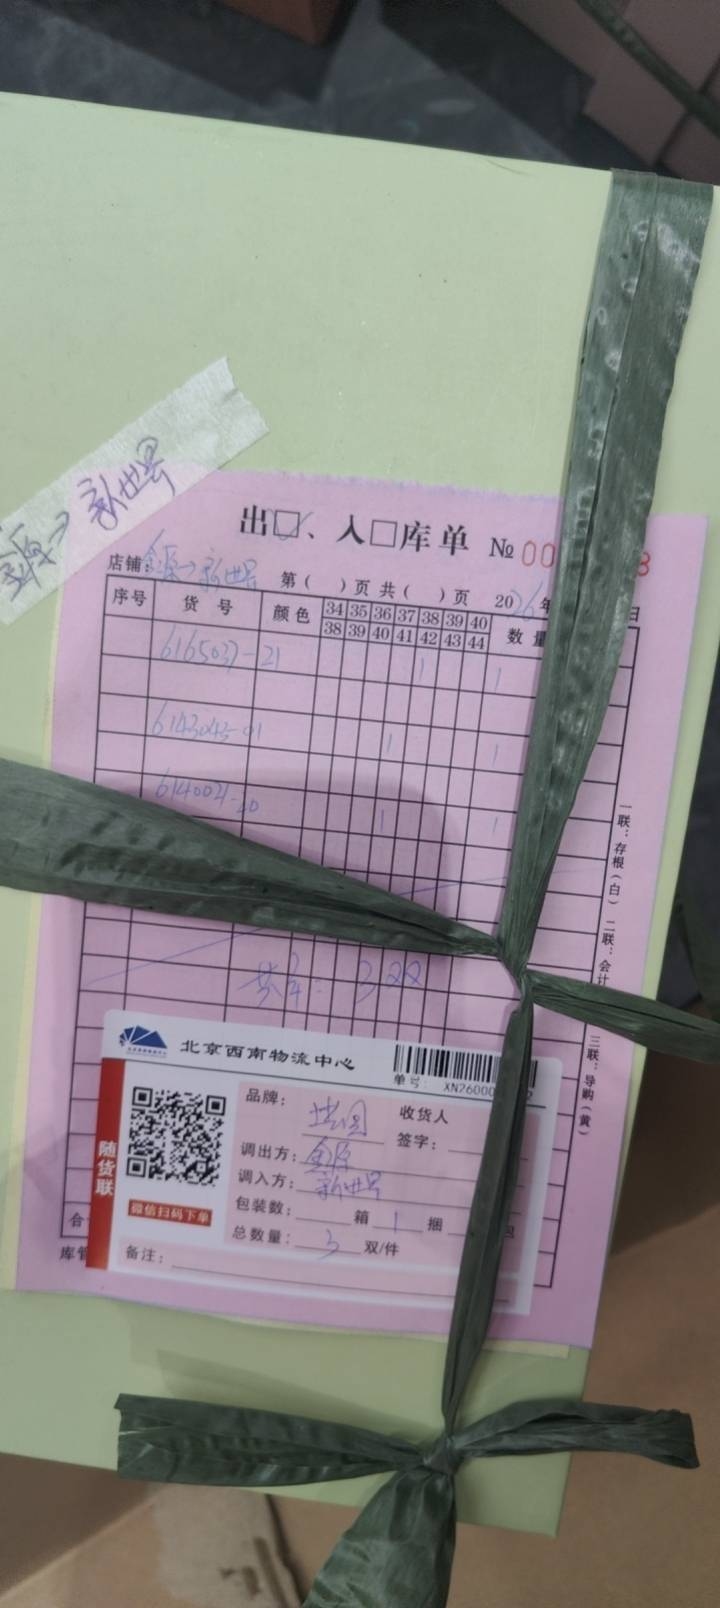 金源→新世界
出☑、入□库单 № 00 8
店铺：金源→新世界 第( )页 共( )页 2026年 日
序号 货号 颜色 34 35 36 37 38 39 40 数量
38 39 40 41 42 43 44
6165037-21 1 1
6143043-01 1 1
6140021-20 1 1
共计: 3双
一联：存根(白) 二联：会计 三联：导购(黄)
北京西南物流中心
单号: XN2600
随货联
品牌： 收货人
签字：
调出方：金源
调入方：新世界
包装数： 箱 1 捆
总数量： 3 双/件
微信扫码下单
备注：
合
库管